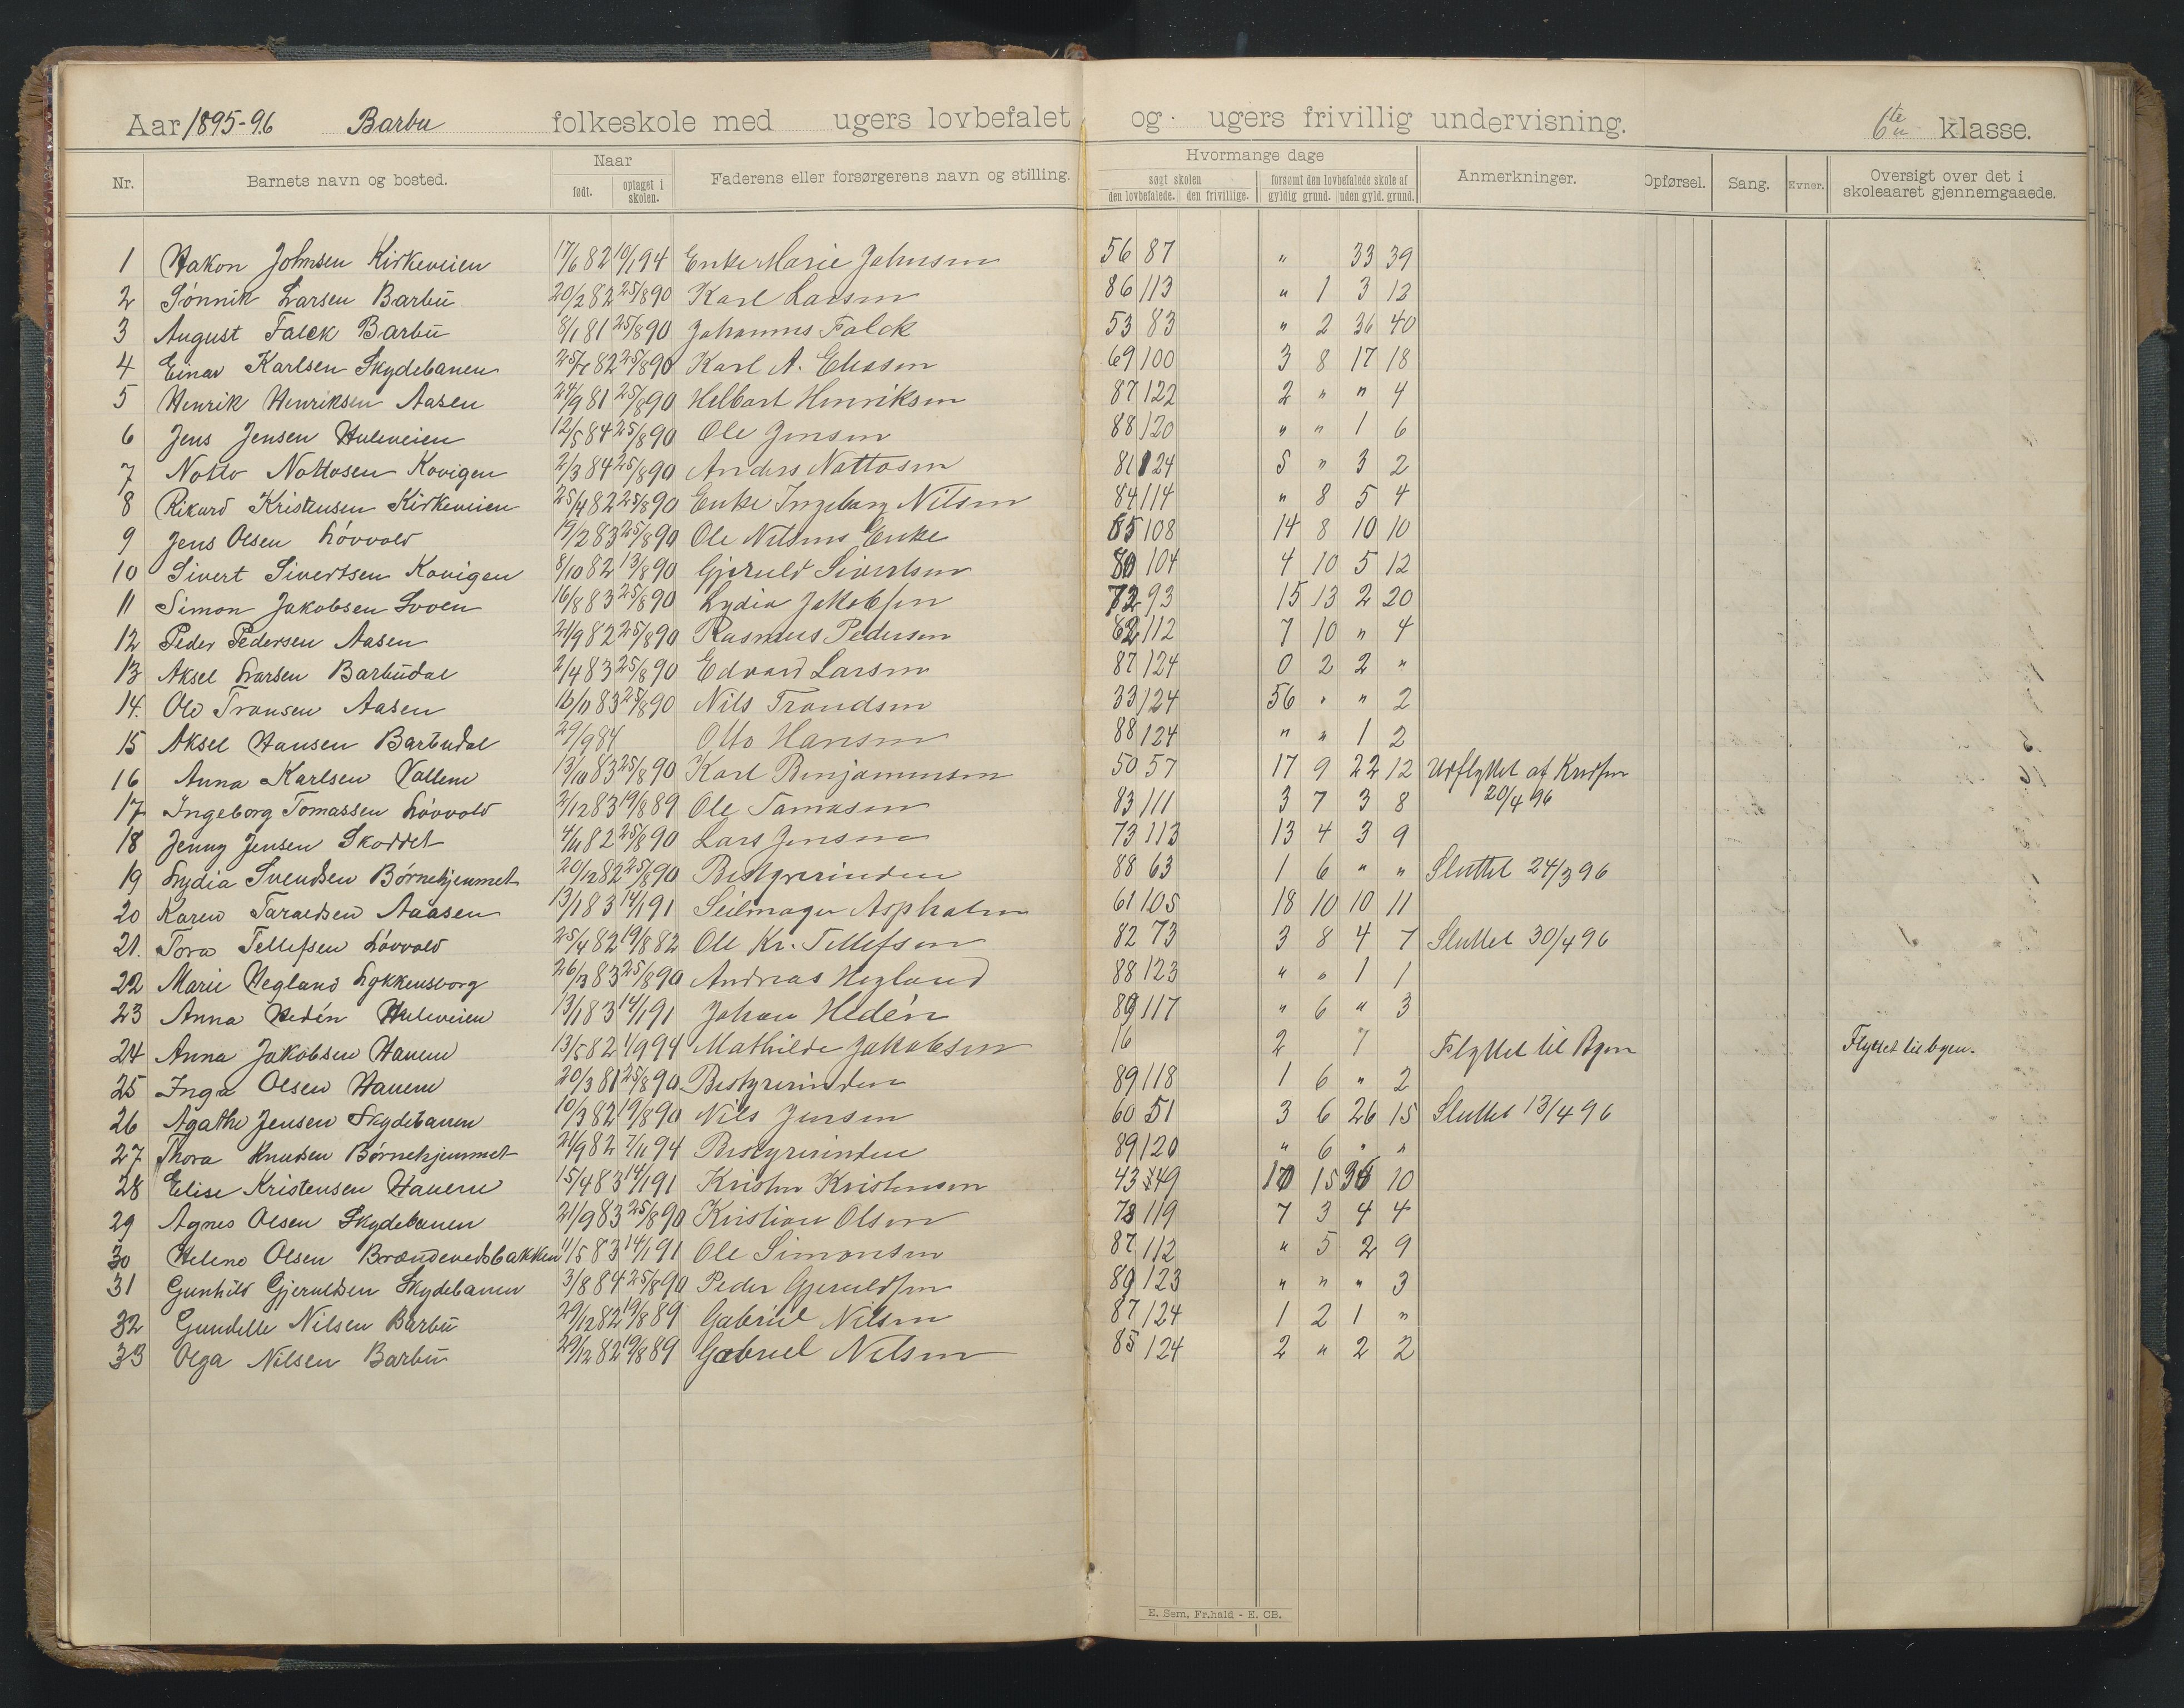 Aar 1895-96 Barbu folkeskole med ugers lovbefalet og ugers frivillig undervisning. 6te klasse.
Nr. Barnets navn og bosted. Naar født. optaget i skolen. Faderens eller forsørgerens navn og stilling. Hvormange dage søgt skolen den lovbefalede. den frivillige. forsømt den lovbefalede skole af gyldig grund. uden gyld. grund. Anmerkninger. Opførsel. Sang. Evner. Oversigt over det i skoleaaret gjennemgaaede.
1 Hakon Johnsen Kirkeveien 17/6 82 10/1 94 Enke Marie Johnsen 56 87 " 33 39
2 Sønnik Larsen Barbu 20/2 82 25/8 90 Karl Larsen 86 113 " 1 3 12
3 August Falck Barbu 8/1 81 25/8 90 Johannes Falck 53 83 " 2 36 40
4 Einar Karlsen Skydebanen 82 25/8 90 Karl A. Eliasen 69 100 3 8 17 18
5 Henrik Henriksen Aasen 24/9 81 25/8 90 Helbart Henriksen 87 122 2 " " 4
6 Jens Jensen Huleveien 12/5 84 25/8 90 Ole Jensen 88 120 " " 1 6
7 Notto Nottosen Kovigen 2/3 84 25/8 90 Anders Nottosen 81 124 5 " 3 2
8 Rikard Kristensen Kirkeveien 25/4 82 25/8 90 Enke Ingeborg Nilsen 84 114 " 8 5 4
9 Jens Olsen Løvvold 19/2 83 25/8 90 Ole Nilsens Enke 65 108 14 8 10 10
10 Sivert Sivertsen Kovigen 8/10 82 13/8 90 Gjeruld Sivertsen 104 4 10 5 12
11 Simon Jakobsen Loven 16/8 83 25/8 90 Lydia Jakobsen 72 93 15 13 2 20
12 Peder Pedersen Aasen 21/9 82 25/8 90 Rasmus Pedersen 62 112 7 10 " 4
13 Aksel Larsen Barbudal 2/4 83 25/8 90 Edvard Larsen 87 124 0 2 2 "
14. Ole Transen Aasen 83 25/8 90 Nils Trondsen 33 124 56 " " 2
15 Aksel Hansen Barbudal 29/9 84 Otto Hansen 88 124 " " 1 2
16 Anna Karlsen Vollene 13/10 83 25/8 90 Karl Benjaminsen 50 57 17 9 22 12 Udflyttet af Kredsen
17 Ingeborg Tomassen Løvvold 2/12 83 19/8 89 Ole Tomasen 83 111 3 7 3 8 20/4 96
18 Jenny Jensen Skoddet 82 25/8 90 Lars Jensen 73 113 13 4 3 9
19 Lydia Svendsen Børnehjemmet 20/12 82 25/8 90 Bestyrerinden 88 63 1 6 " " Sluttet 24/3 96
20 Karen Taraldsen Aaasen 13/1 83 14/1 91 Seilmager Aspholm 61 105 18 10 10 11
21. Tora Tellefsen Løvvold 25/4 82 19/8 82 Ole Kr. Tellefsen 82 73 3 8 4 7 Sluttet 30/4 96
22 Marie Hegland Lykkensborg 26/3 83 25/8 90 Andreas Hegland 88 123 " " 1 1
23 Anna Hedén Huleveien 13/1 83 14/1 91 Johan Hedén 89 117 " 6 " 3
24 Anna Jakobsen Hauene 13/5 82 1/9 94 Mathilde Jakobsen 16 2 7 Flyttet til Byen Flyttet til byen.
25 Inga Olsen Hauene 20/3 81 25/8 90 Bestyrerinden 89 118 1 6 " 2
26 Agathe Jensen Skydebanen 10/3 82 19/8 90 Nils Jensen 60 51 3 6 26 15 Sluttet 13/4 96
27 Thora Knudsen Børnehjemmet 21/9 82 7/11 94 Bestyrerinden 89 120 " 6 " "
28 Elise Kristensen Hauene 15/4 83 14/1 91 Kristen Kristensen 43 15 10
29 Agnes Olsen Skydebanen 21/9 83 25/8 90 Kristian Olsen 78 119 7 3 4 4
30 Helene Olsen Brændevedsbakken 11/5 83 14/1 91 Ole Simonsen 87 112 " 5 2 9
31 Gunhild Gjeruldsen Skydebanen 3/8 84 25/8 90 Peder Gjeruldsen 89 123 " " " 3
32 Gundelle Nilsen Barbu 29/12 82 19/8 89 Gabriel Nilsen 87 124 1 2 1 "
33 Olga Nilsen Barbu 29/12 82 19/8 89 Gabriel Nilsen 85 124 2 " 2 2
E. Sem, Fr.hald - E. CB.